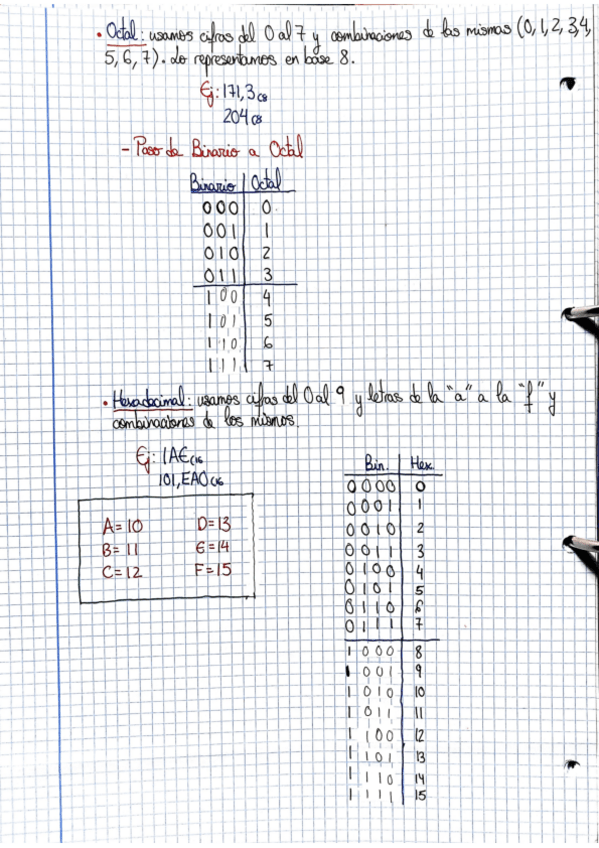 • Octal: usamos cifras del 0 al 7 y combinaciones de las mismas (0, 1, 2, 3, 4,
5, 6, 7). Lo representamos en base 8.
Ej: 171,3(8
204(8
- Paso de Binario a Octal
Binario | Octal
000 0
001 1
010 2
011 3
100 4
101 5
110 6
111 7
• Hexadecimal: usamos cifras del 0 al 9 y letras de la "a" a la "f" y
combinaciones de los mismos.
Ej: 1AE(16
101,EA0(16
A=10 D=13
B=11 E=14
C=12 F=15
Bin. | Hex.
0000 0
0001 1
0010 2
0011 3
0100 4
0101 5
0110 6
0111 7
1000 8
1001 9
1010 10
1011 11
1100 12
1101 13
1110 14
1111 15